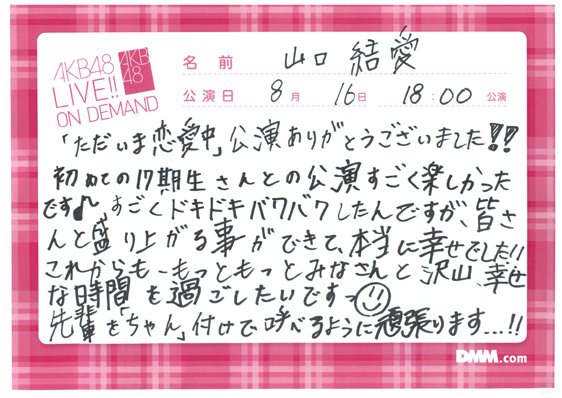 AKB48
LIVE!!
ON DEMAND
AKB
48
名前 山口 結愛
公演日 8月 16日 18:00 公演
「ただいま恋愛中」公演ありがとうございました!!
初めての17期生さんとの公演すごく楽しかった
です♪ すごくドキドキバクバクしたんですが、皆さ
んと盛り上がる事ができて、本当に幸せでした!!
これからも、もっともっとみなさんと沢山、幸せ
な時間を過ごしたいですっ
先輩を「ちゃん」付けで呼べるように頑張ります...!!
DMM.com